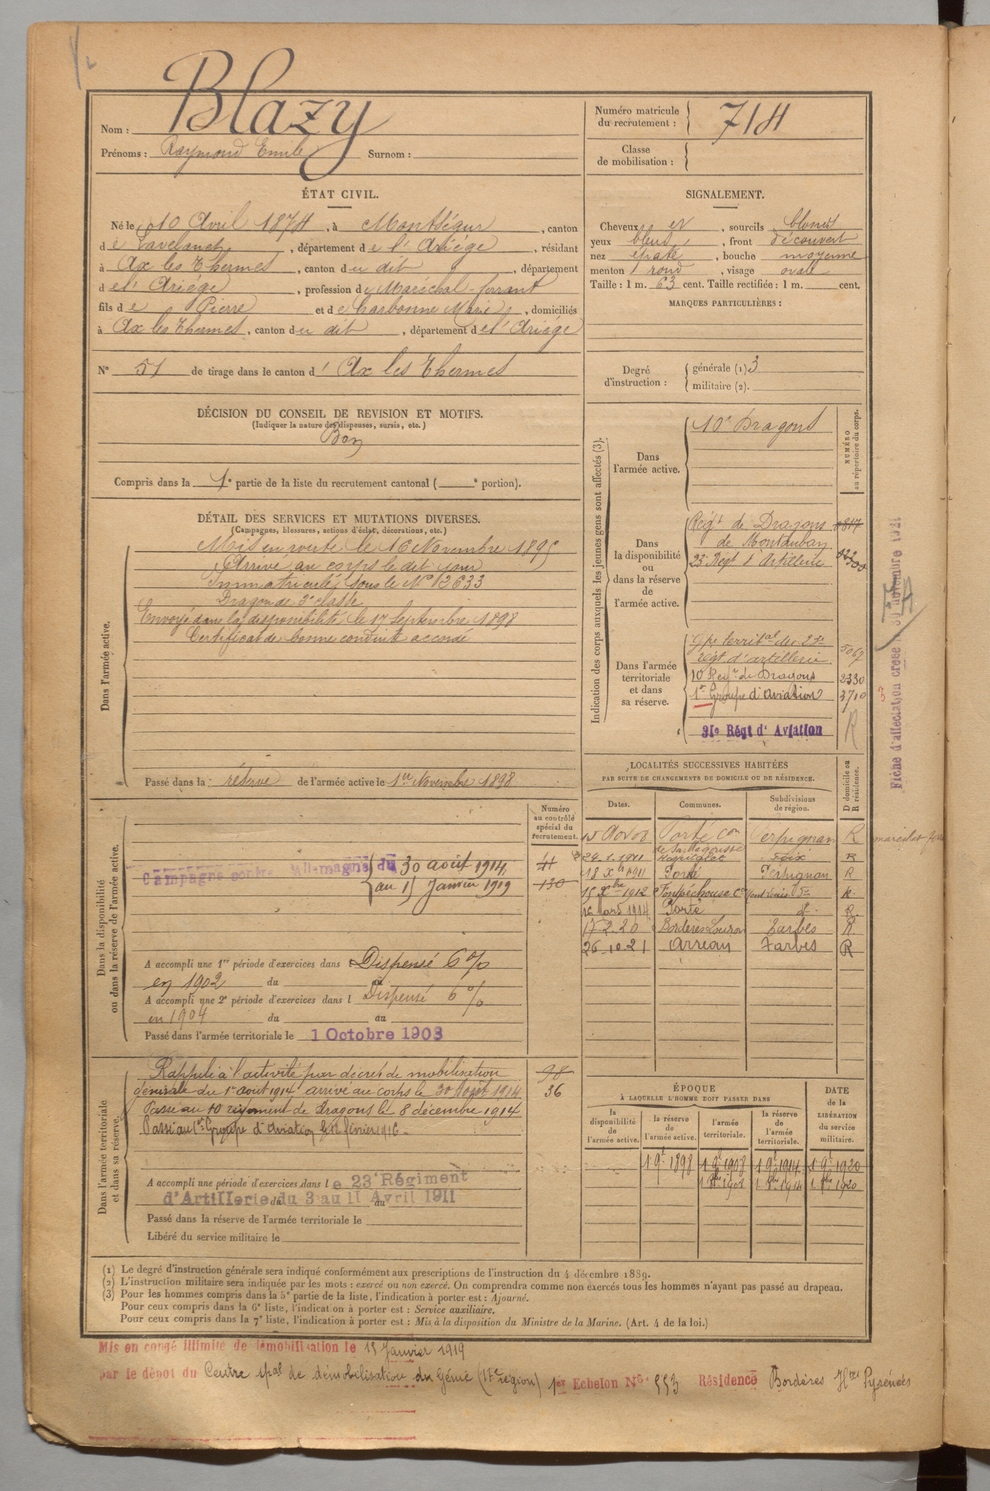 Blazy
Nom :
Prénoms : Raymond Emile Surnom :
Numéro matricule
du recrutement : 714
Classe
de mobilisation :
ÉTAT CIVIL.
Né le 10 Avril 1874, à Montségur, canton
de Lavelanet, département de l'Ariège, résidant
à Ax les Thermes, canton du dit, département
de l'Ariège, profession de Maréchal-ferrant
fils de Pierre et de Carbonne Marie, domiciliés
à Ax les Thermes, canton du dit, département de l'Ariège
N° 51 de tirage dans le canton d' Ax les Thermes
SIGNALEMENT.
Cheveux et, sourcils blonds
yeux bleus, front découvert
nez épaté, bouche moyenne
menton rond, visage ovale
Taille : 1 m. 63 cent. Taille rectifiée : 1 m. cent.
MARQUES PARTICULIÈRES :
Degré
d'instruction :
générale (1) 3
militaire (2).
DÉCISION DU CONSEIL DE REVISION ET MOTIFS.
(Indiquer la nature des dispenses, sursis, etc.)
Bon
Compris dans la 1e partie de la liste du recrutement cantonal ( e portion).
DÉTAIL DES SERVICES ET MUTATIONS DIVERSES.
(Campagnes, blessures, actions d'éclat, décorations, etc.)
Dans l'armée active.
Mis en route le 16 Novembre 1895
Arrivé au corps le dit jour
Immatriculé sous le N° 12633
Dragon de 2e classe
Envoyé dans la disponibilité le 17 Septembre 1898
Certificat de bonne conduite accordé
Passé dans la réserve de l'armée active le 1er Novembre 1898
Indication des corps auxquels les jeunes gens sont affectés (3).
NUMÉRO
au répertoire du corps.
Dans
l'armée active.
10e Dragons
Dans
la disponibilité
ou
dans la réserve
de
l'armée active.
Régt de Dragons
de Montauban
23e Régt d'Artillerie
Dans l'armée
territoriale
et dans
sa réserve.
Gpe territal du 23e
régt d'artillerie
10 Regt de Dragons 2330
1er Groupe d'aviation 3710
31e Régt d'Aviation R
Fiche d'affectation créée le 30 Novembre 1921
LOCALITÉS SUCCESSIVES HABITÉES
PAR SUITE DE CHANGEMENTS DE DOMICILE OU DE RÉSIDENCE.
Dates. Communes. Subdivisions
de région.
D domicile ou
R résidence.
15 Nov 08 Porté Perpignan R
24.1.1911 Foix R
1911 Porté Perpignan R
1912 R
16 Mars 1914 Porté d° R
17.2.20 Bordères Louron Tarbes R
26.10.21 Arreau Tarbes R
Dans la disponibilité
ou dans la réserve de l'armée active.
Numéro
au contrôle
spécial du
recrutement.
Campagne contre Allemagne du 30 août 1914
au 15 Janvier 1919
A accompli une 1re période d'exercices dans Dispensé 6 %
en 1902 du au
A accompli une 2e période d'exercices dans l Dispensé 6 %
en 1904 du au
Passé dans l'armée territoriale le 1 Octobre 1908
Dans l'armée territoriale
et dans sa réserve.
Rappelé à l'activité par décret de mobilisation
générale du 1er août 1914 arrivé au corps le 30 Août 1914
Passé au 10 régiment de Dragons le 8 décembre 1914
Passé au 1er Groupe d'aviation le février 1916.
98
36
A accompli une période d'exercices dans le 23e Régiment
d'Artillerie du 3 au 11 Avril 1911
Passé dans la réserve de l'armée territoriale le
Libéré du service militaire le
ÉPOQUE
À LAQUELLE L'HOMME DOIT PASSER DANS
la
disponibilité
de
l'armée active.
la réserve
de
l'armée active.
l'armée
territoriale.
la réserve
de
l'armée
territoriale.
DATE
de la
LIBÉRATION
du service
militaire.
1 9e 1898 1 9e 1908 1 9e 1914 1 9e 1920
(1) Le degré d'instruction générale sera indiqué conformément aux prescriptions de l'instruction du 4 décembre 1889.
(2) L'instruction militaire sera indiquée par les mots : exercé ou non exercé. On comprendra comme non exercés tous les hommes n'ayant pas passé au drapeau.
(3) Pour les hommes compris dans la 5e partie de la liste, l'indication à porter est : Ajourné.
Pour ceux compris dans la 6e liste, l'indication à porter est : Service auxiliaire.
Pour ceux compris dans la 7e liste, l'indication à porter est : Mis à la disposition du Ministre de la Marine. (Art. 4 de la loi.)
Mis en congé illimité de démobilisation le 15 Janvier 1919
par le dépôt du Centre spal de démobilisation du Génie (17e région) 1er Echelon N° 553 Résidence Bordères Htes Pyrénées